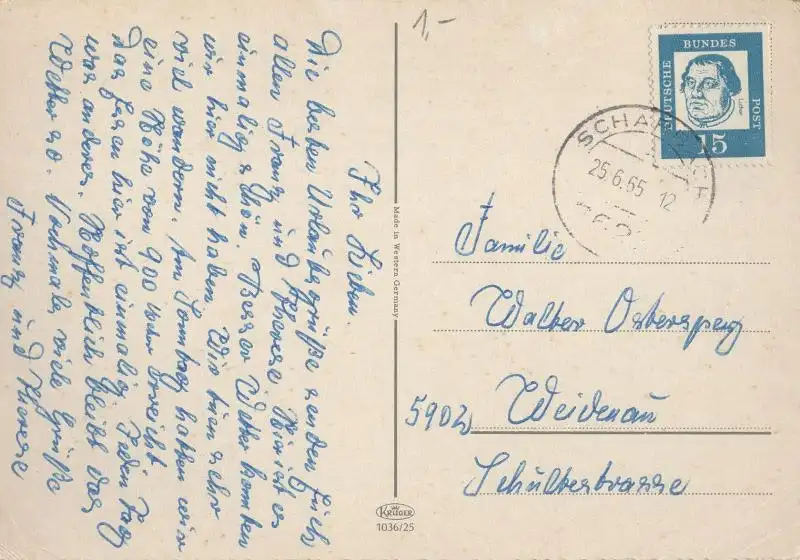 Ihr Lieben.
Die besten Urlaubsgrüße senden Euch
allen Franz und Therese. Hier ist es
einmalig schön. Besser Wetter konnten
wir hier nicht haben. Wir tun sehr
viel wandern. Am Sonntag hatten wir
eine Höhe von 900 Meter erreicht.
Das Essen hier ist einmalig. Jeden Tag
was anderes. Hoffentlich bleibt das
Wetter so. Nochmals viele Grüße
Franz und Therese
Made in Western Germany
KRÜGER
1036/25
1,-
DEUTSCHE BUNDES POST
Luther
15
25.6.65 12
Familie
Walter Ostersperg
5902 Weidenau
Schulterstrasse